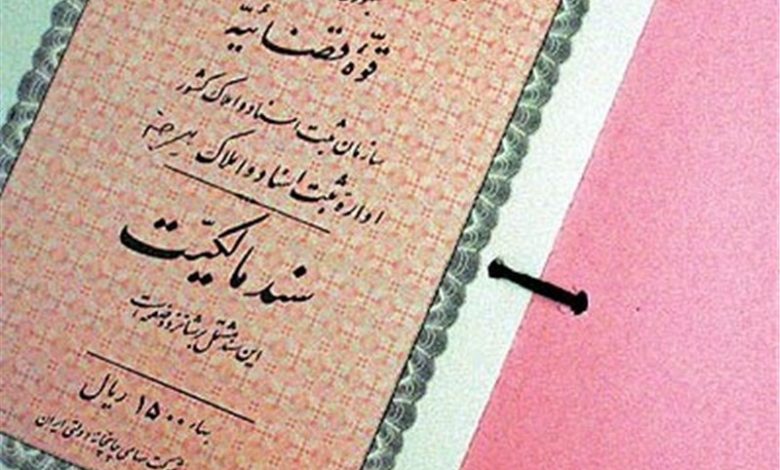 قوّهٔ قضائیّه
سازمان ثبت اسناد و املاک کشور
اداره ثبت اسناد و املاک
سند مالکیّت
این سند مشتمل بر شانزده صفحه است
بهاء ۱۵۰۰ ریال
شرکت سهامی چاپخانه دولتی ایران